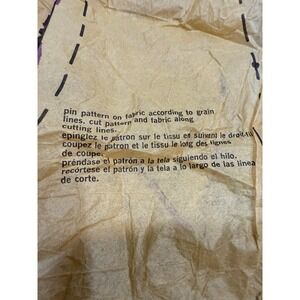 pin pattern on fabric according to grain
lines. cut pattern and fabric along
cutting lines.
épinglez le patron sur le tissu en suivant le droit-fil
coupez le patron et le tissu le long des lignes
de coupe.
préndase el patrón a la tela siguiendo el hilo.
recórtese el patrón y la tela a lo largo de las línea
de corte.